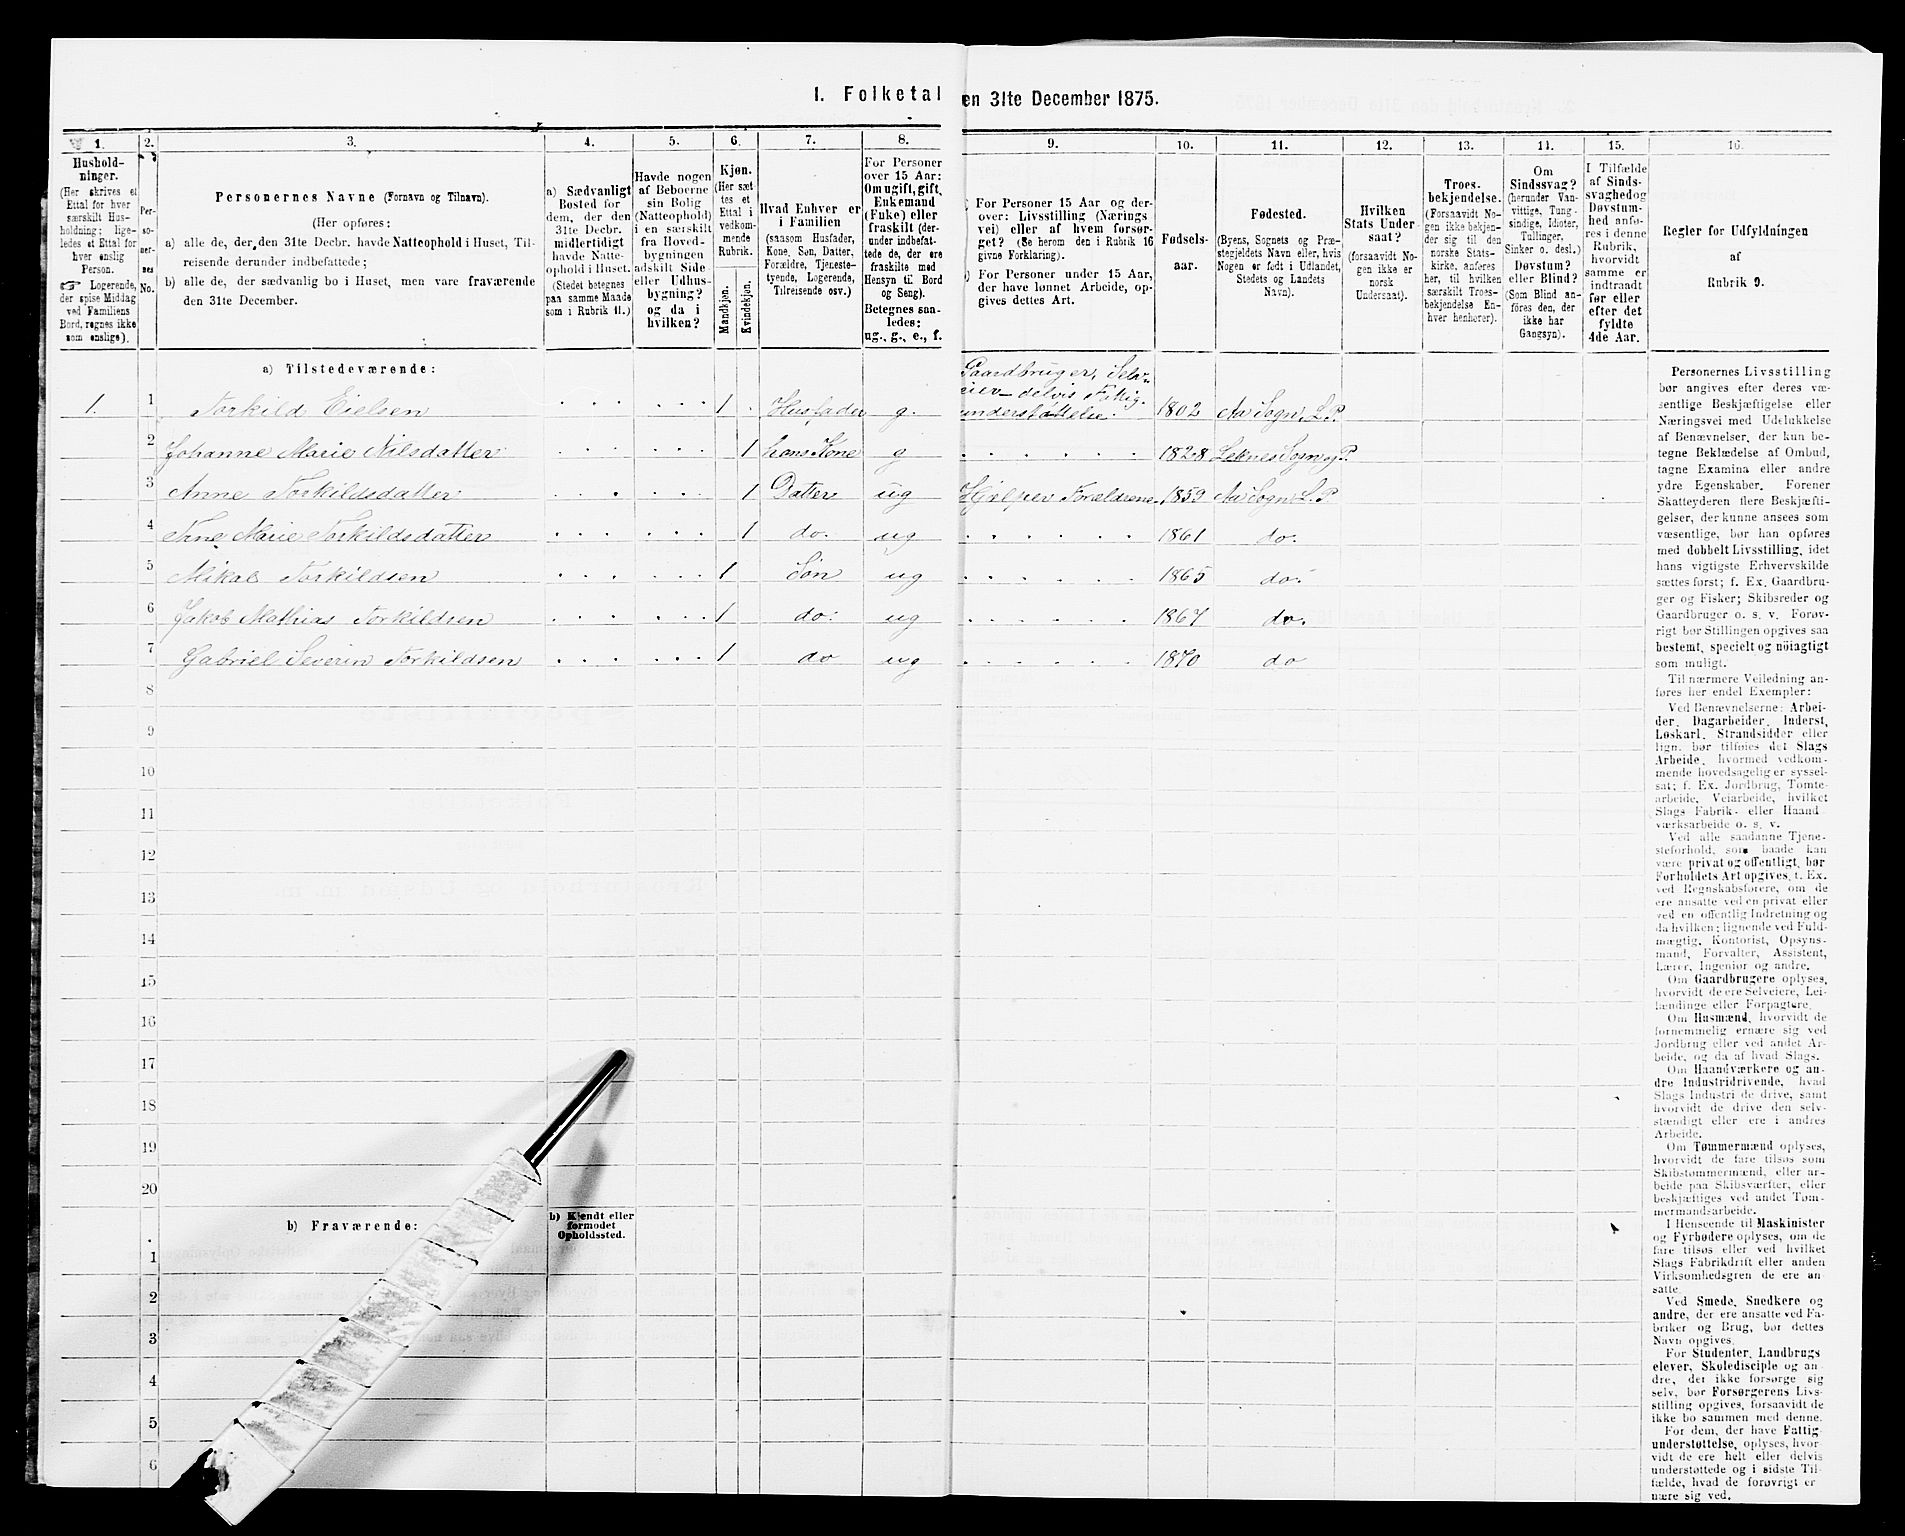 I. Folketal den 31te December 1875.
1. 2. 3. 4. 5. 6. 7. 8. 9. 10. 11. 12. 13. 14. 15. 16.
Hushold-
ninger.
(Her skrives et
Ettal for hver
særskilt Hus-
holdning; lige-
ledes et Ettal for
hver enslig
Person.
☞ Logerende,
der spise Middag
ved Familiens
Bord, regnes ikke
som enslige).
Per-
so-
ner-
nes
No.
Personernes Navne (Fornavn og Tilnavn).
(Her opføres:
a) alle de, der den 31te Decbr. havde Natteophold i Huset, Til-
reisende derunder indbefattede;
b) alle de, der sædvanlig bo i Huset, men vare fraværende
den 31te December.
a) Sædvanligt
Bosted for
dem, der den
31te Decbr.
midlertidigt
havde Natte-
ophold i Huset.
(Stedet betegnes
paa samme Maade
som i Rubrik 11.)
Havde nogen
af Beboerne
sin Bolig
(Natteophold)
i en særskilt
fra Hoved-
bygningen
adskilt Side
eller Udhus-
bygning?
og da i
hvilken?
Kjøn.
(Her sæt
tes et
Ettal i
vedkom-
mende
Rubrik.
Mandkjøn.
Kvindekjøn.
Hvad Enhver er
i Familien
(saasom Husfader,
Kone, Søn, Datter,
Forældre, Tjeneste-
tyende, Logerende,
Tilreisende osv.)
For Personer
over 15 Aar:
Om ugift, gift,
Enkemand
(Enke) eller
fraskilt (der-
under indbefat-
tede de, der ere
fraskilte med
Hensyn til Bord
og Seng).
Betegnes saa-
ledes:
ug., g., e., f.
For Personer 15 Aar og der-
over: Livsstilling (Nærings
vei) eller af hvem forsør-
get? (Se herom den i Rubrik 16
givne Forklaring).
) For Personer under 15 Aar,
der have lønnet Arbeide, op-
gives dettes Art.
Fødsels-
aar.
Fødested.
(Byens, Sognets og Præ-
stegjeldets Navn eller, hvis
Nogen er født i Udlandet,
Stedets og Landets
Navn).
Hvilken
Stats Under
saat?
(forsaavidt No-
gen ikke er
norsk
Undersaat).
Troes-
bekjendelse.
(Forsaavidt No-
gen ikke bekjen-
der sig til den
norske Stats-
kirke, anføres
her, til hvilken
særskilt Troes-
bekjendelse En-
hver henhører).
Om
Sindssvag?
(herunder Van-
vittige, Tung-
sindige, Idioter,
Tullinger,
Sinker o. desl.)
Døvstum?
eller Blind?
(Som Blind an-
føres den, der
ikke har
Gangsyn).
I Tilfælde
af Sinds-
svaghed og
Døvstum-
hed anfø-
res i denne
Rubrik,
hvorvidt
samme er
indtraadt
før eller
efter det
fyldte
4de Aar.
Regler for Udfyldningen
af
Rubrik 9.
a) Tilstedeværende:
1. 1 Torkild Eielsen 1 Husfader g. Gaardbruger, Selv-
eier - delvis Fattig-
understøttelse. 1802 Aa Sogn, L. P.
2 Johanne Marie Nilsdatter 1 hans Kone g 1828 Leknes Sogn og P.
3 Anne Torkildsdatter 1 Datter ug Hjelper Forældrene 1859 Aa Sogn, L. P
4 Tine Marie Torkildsdatter 1 do. ug 1861 do.
5 Mikal Torkildsen 1 Søn ug 1865 do.
6 Jakob Mathias Torkildsen 1 do. ug 1867 do.
7 Gabriel Severin Torkildsen 1 do ug 1870 do
8
9
10
11
12
13
14
15
16
17
18
19
20
b) Fraværende:
b) Kjendt eller
formodet
Opholdssted.
1
2
3
4
5
6
Personernes Livsstilling
bør angives efter deres væ-
sentlige Beskjæftigelse eller
Næringsvei med Udelukkelse
af Benævnelser, der kun be-
tegne Beklædelse af Ombud,
tagne Examina eller andre
ydre Egenskaber. Forener
Skatteyderen flere Beskjæfti-
gelser, der kunne ansees som
væsentlige, bør han opføres
med dobbelt Livsstilling, idet
hans vigtigste Erhvervskilde
sættes først; f. Ex. Gaardbru-
ger og Fisker; Skibsreder og
Gaardbruger o. s. v. Forøv-
rigt bør Stillingen opgives saa
bestemt, specielt og nöiagtigt
som muligt.
Til nærmere Veiledning an-
føres her endel Exempler:
Ved Benævnelserne: Arbei-
der, Dagarbeider, Inderst,
Løskarl, Strandsidder eller
lign. bør tilføies det Slags
Arbeide, hvormed vedkom-
mende hovedsagelig er syssel-
sat; f. Ex. Jordbrug, Tomte-
arbeide, Veiarbeide, hvilket
Slags Fabrik- eller Haand
værksarbeide o. s. v.
Ved alle saadanne Tjene-
steforhold, som baade kan
være privat og offentligt, bør
Forholdets Art opgives, f. Ex.
ved Regnskabsførere, om de
ere ansatte ved en privat eller
ved en offentlig Indretning og
da hvilken; lignende ved Fuld-
mægtig, Kontorist, Opsyns-
mand, Forvalter, Assistent,
Lærer, Ingeniør og andre.
Om Gaardbrugere oplyses,
hvorvidt de ere Selveiere, Lei-
lændinge eller Forpagtere.
Om Husmænd, hvorvidt de
fornemmelig ernære sig ved
Jordbrug eller ved andet Ar-
beide, og da af hvad Slags.
Om Haandværkere og an-
dre Industridrivende, hvad
Slags Industri de drive, samt
hvorvidt de drive den selv-
stændigt eller ere i andres
Arbeide.
Om Tømmermænd oplyses,
hvorvidt de fare tilsøs som
Skibstømmermænd, eller ar-
beide paa Skibsværfter, eller
beskjæftiges ved andet Tøm-
mermandsarbeide.
I Henseende til Maskinister
og Fyrbødere oplyses, om de
fare tilsøs eller ved hvilket
Slags Fabrikdrift eller anden
Virksomhedsgren de ere an-
satte.
Ved Smede, Snedkere og
andre, der ere ansatte ved Fa-
briker og Brug, bør dettes
Navn opgives.
For Studenter, Landbrugs
elever, Skoledisciple og an-
dre, der ikke forsørge sig
selv, bør Forsørgerens Livs-
stilling opgives, forsaavidt de
ikke bo sammen med denne.
For dem, der have Fattig
understøttelse, oplyses, hvor-
vidt de ere helt eller delvis
understøttede og i sidste Til-
fælde, hvad de forøvrigt er
nære sig ved.